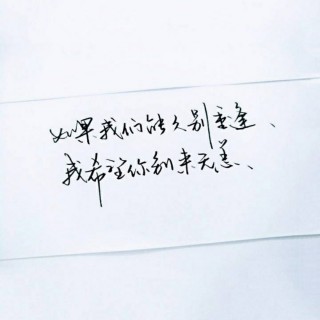 如果我们能久别重逢、
我希望你别来无恙、